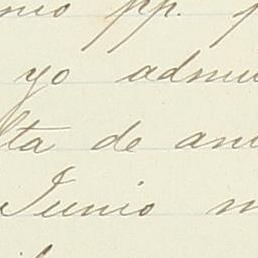 nio pp.
yo admi
lta de an
Junio